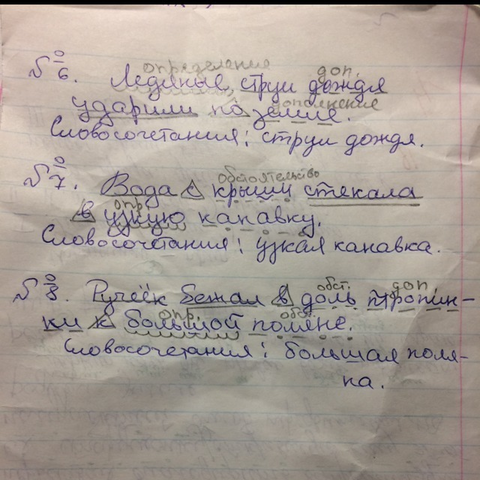 определения доп.
№6. Ледяные струи дождя
дополнение
ударили по земле.
Словосочетания: струи дождя.
обстоятельство
№7. Вода с крыши стекала
опр.
в узкую канавку.
Словосочетания: узкая канавка.
обст. доп.
№8. Ручеёк бежал в доль тропин-
опр. обс.
ки к большой поляне.
Словосочетания: большая поля-
на.